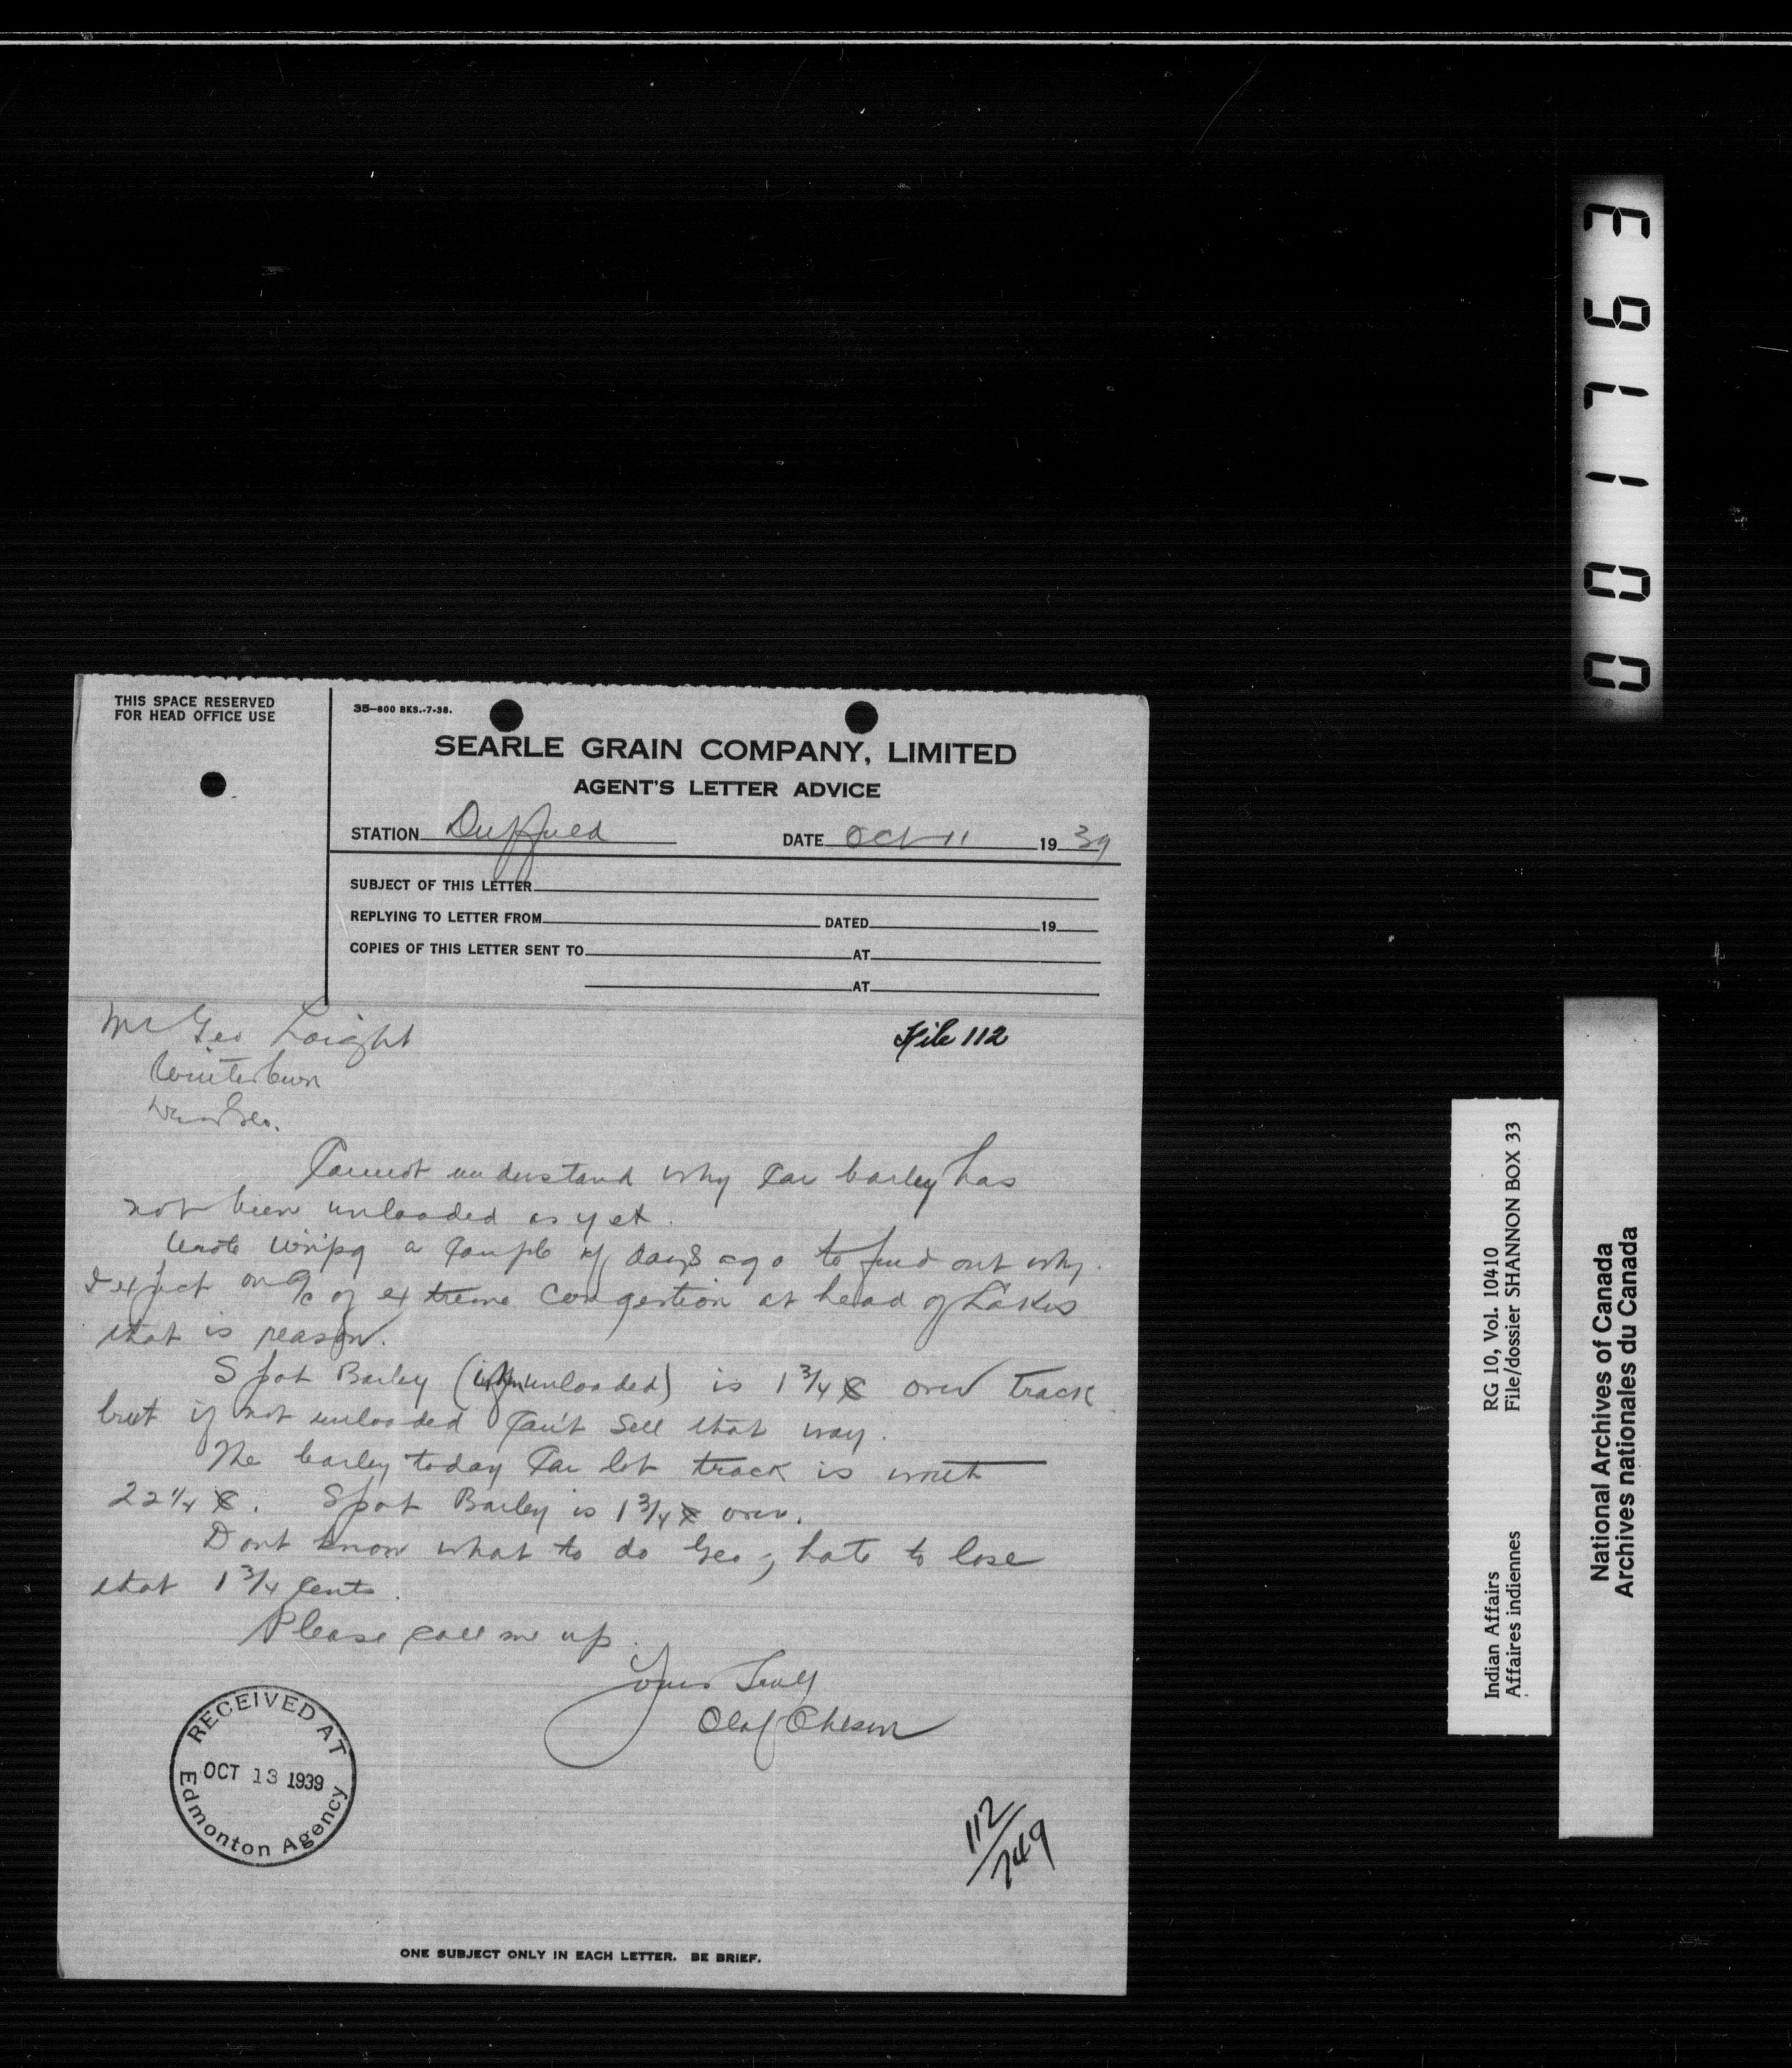 THIS SPACE RESERVED
FOR HEAD OFFICE USE
35—800 BKS.-7-38.
SEARLE GRAIN COMPANY, LIMITED
AGENT'S LETTER ADVICE
STATION Duffield DATE Oct 11 1939
SUBJECT OF THIS LETTER
REPLYING TO LETTER FROM DATED 19
COPIES OF THIS LETTER SENT TO AT
AT
Mr Geo Laight
File 112
Winterburn
Dear Geo.
Cannot understand why car barley has
not been unloaded as yet.
Wrote Winpg a couple of days ago to find out why.
I expect on a/c of extreme congestion at head of Lakes
that is reason.
Spot Barley (if unloaded) is 1 3/4 ¢ over track
but if not unloaded can't sell that way.
The barley today car lot track is worth
22 1/4 ¢. Spot Barley is 1 3/4 ¢ over.
Dont know what to do Geo, hate to lose
that 1 3/4 cents.
Please call me up.
Yours Truly
Olaf
RECEIVED AT
OCT 13 1939
Edmonton Agency
112/749
ONE SUBJECT ONLY IN EACH LETTER. BE BRIEF.
001763
Indian Affairs RG 10, Vol. 10410
Affaires indiennes File/dossier SHANNON BOX 33
National Archives of Canada
Archives nationales du Canada